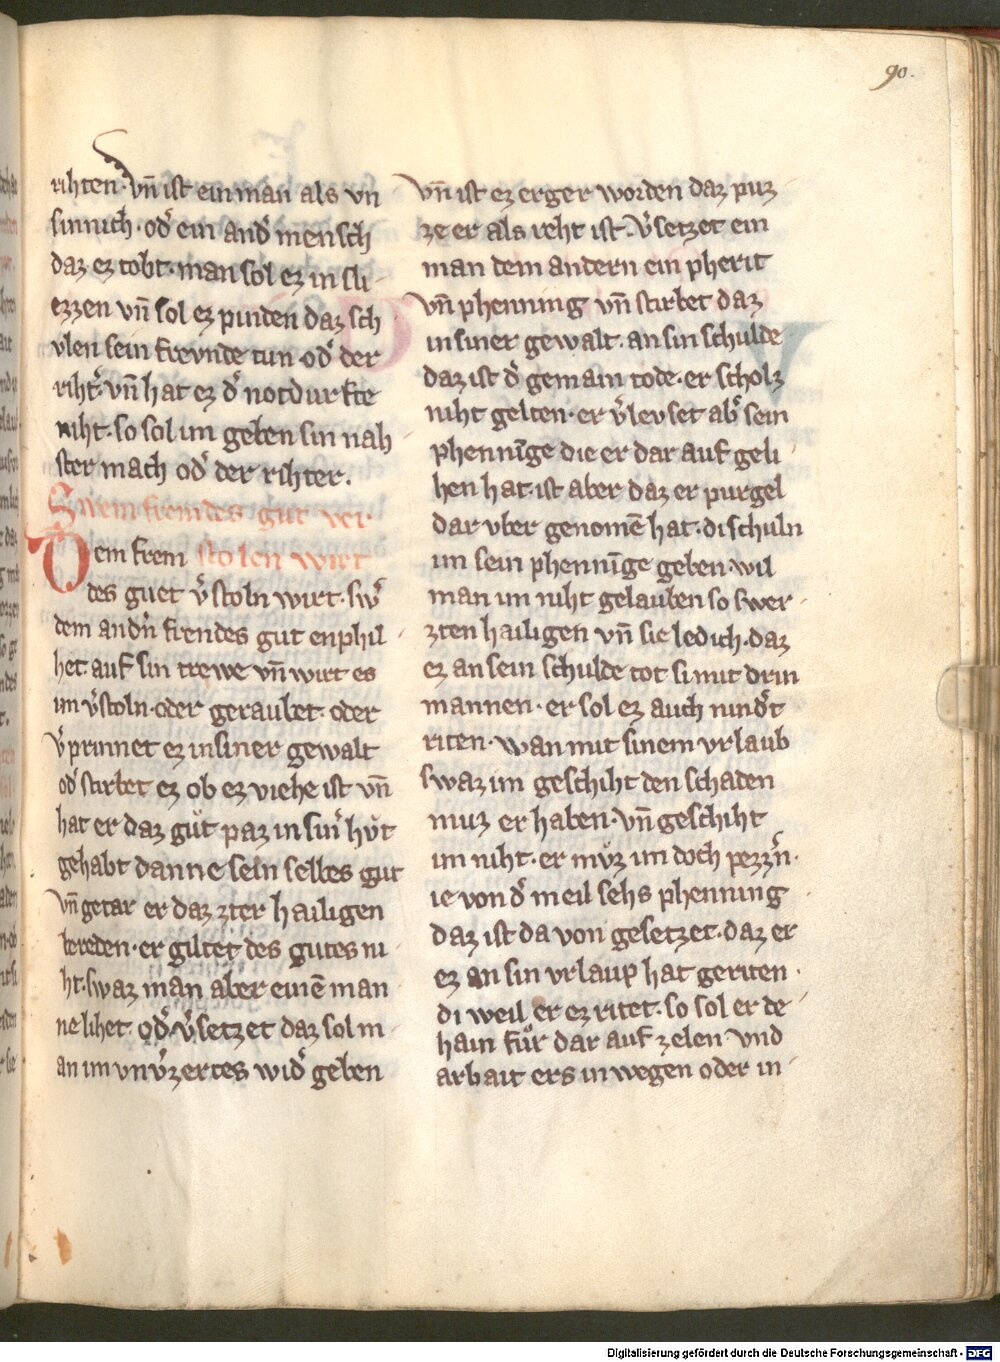 90.
rihten. vn̄ ist ein man als vn
sinnich. od̓ ein and̓ mensch
daz ez tobt. man sol ez in sli
ezzen vn̄ sol ez pinden daz sch
vlen sein frevnde tun. od̓ der
riht̓. vn̄ hat ez d̓ notdurfte
niht. so sol im geben sin nah
ster mach od̓ der rihter.
Swem fremdes gut ver
stolen wirt
Dem frem
des guet v̓stoln wirt. sw̓
dem andn̓ frendes gut enphil
het auf sin trewe vn̄ wirt es
im v̓stoln. oder geraubet. oder
v̓prinnet ez in siner gewalt
od̓ stirbet ez ob ez viehe ist vn̄
hat er daz gůt paz in sin̓ hůt
gehabt danne sein selbes gut
vn̄ getar er daz zter hailigen
bereden. er giltet des gutes ni
ht. swaz man aber einē man
ne lihet. od̓ v̓setzet daz sol m
an im vnv̓zertes wid̓ geben
vn̄ ist ez erger worden daz puz
ze er als reht ist. V̓setzet ein
man dem andern ein pherit
vn̄ phenning vn̄ stirbet daz
in siner gewalt. an sin schulde
daz ist d̓ gemain tode. er scholz
niht gelten. er v̓levset ab̓ sein
phennīge die er dar auf geli
hen hat. ist aber daz er purgel
dar vber genomē hat. di schuln
im sein phennīge geben. wil
man im niht gelauben so swer
zten hailigen vn̄ sie ledich. daz
ez an sein schulde tot si mit drin
mannen. er sol ez auch nind̓t
riten. wan mit sinem vrlaub
swaz im geschiht den schaden
muz er haben. vn̄ geschiht
im niht. er můz im doch pezzn̓.
ie von d̓ meil sehs phenning
daz ist da von gesetzet. daz er
ez an sin vrlaup hat geriten.
di weil er ez ritet. so sol er de
hain fůr dar auf zelen vnd
arbait ers in wegen oder in
Digitalisierung gefördert durch die Deutsche Forschungsgemeinschaft - DFG